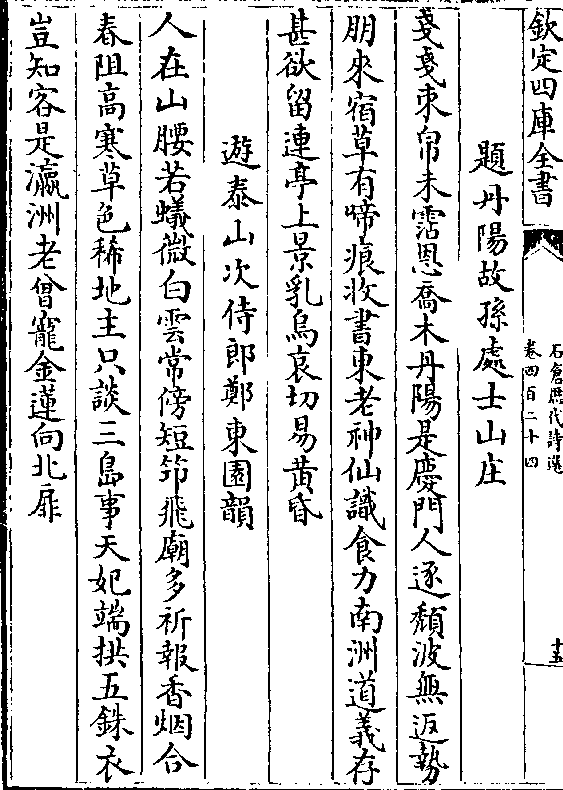 欽定四庫全書
石倉歷代詩選
卷四百二十四
十五
題丹陽故孫處士山庄
戔戔束帛未霑恩喬木丹陽是慶門人逐頹波無返勢
朋來宿草有啼痕收書東老神仙識食力南洲道義存
甚欲留連亭上景乳烏哀切易黃昏
遊泰山次侍郎鄭東園韻
人在山腰若蟻微白雲常傍短笻飛廟多祈報香烟合
春阻高寒草色稀地主只談三島事天妃端拱五銖衣
豈知客是瀛洲老曾寵金蓮向北扉